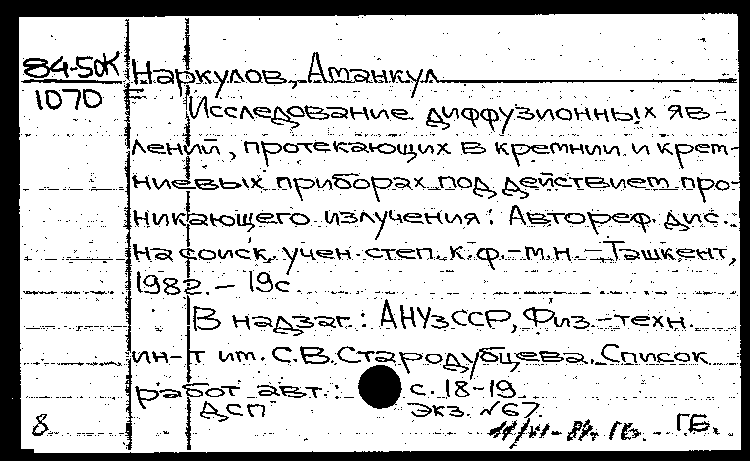 84-5ОК Наркулов, Аманкул
1070
Исследование диффузионных яв-
лений, протекающих в кремнии и крем-
ниевых приборах под действием про-
никающего излучения: Автореф. дис.
на соиск. учен. степ. к.ф.-м.н. - Ташкент,
1982. - 19с.
В надзаг.: АНУзССР, Физ.-техн.
ин-т им. С.В.Стародубцева. Список
работ авт.: с. 18-19
ДСП экз. №67.
8 ГБ. ГБ.